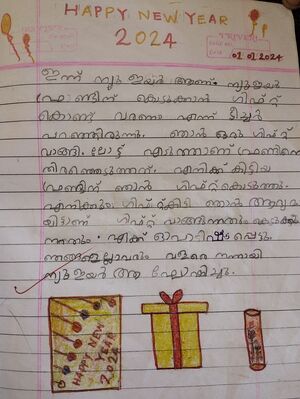 HAPPY NEW YEAR
2024
TRIVENI
01 01 2024
ഇന്ന് ന്യൂ ഇയർ ആണ്. ന്യൂ ഇയർ
ഫ്രണ്ടിന് കൊടുക്കാൻ ഗിഫ്റ്റ്
കൊണ്ട് വരണം എന്ന് ടീച്ചർ
പറഞ്ഞിരുന്നു. ഞാൻ ഒരു ഗിഫ്റ്റ്
വാങ്ങി. ലോട്ട് എടുത്താണ് ഫ്രണ്ടിനെ
തിരഞ്ഞെടുത്തത്. എനിക്ക് കിട്ടിയ
ഫ്രണ്ടിന് ഞാൻ ഗിഫ്റ്റ് കൊടുത്തു.
എനിക്കും ഗിഫ്റ്റ് കിട്ടി ഞാൻ ആദ്യമാ
യിട്ടാണ് ഗിഫ്റ്റ് വാങ്ങുന്നതും കൊടുക്കു
ന്നതും. എനിക്ക് ഇഷ്ടപ്പെട്ടു.
ഞങ്ങളെല്ലാവരും വളരെ നന്നായി
ന്യൂ ഇയർ ആഘോഷിച്ചു.
HAPPY NEW
YEAR
2024